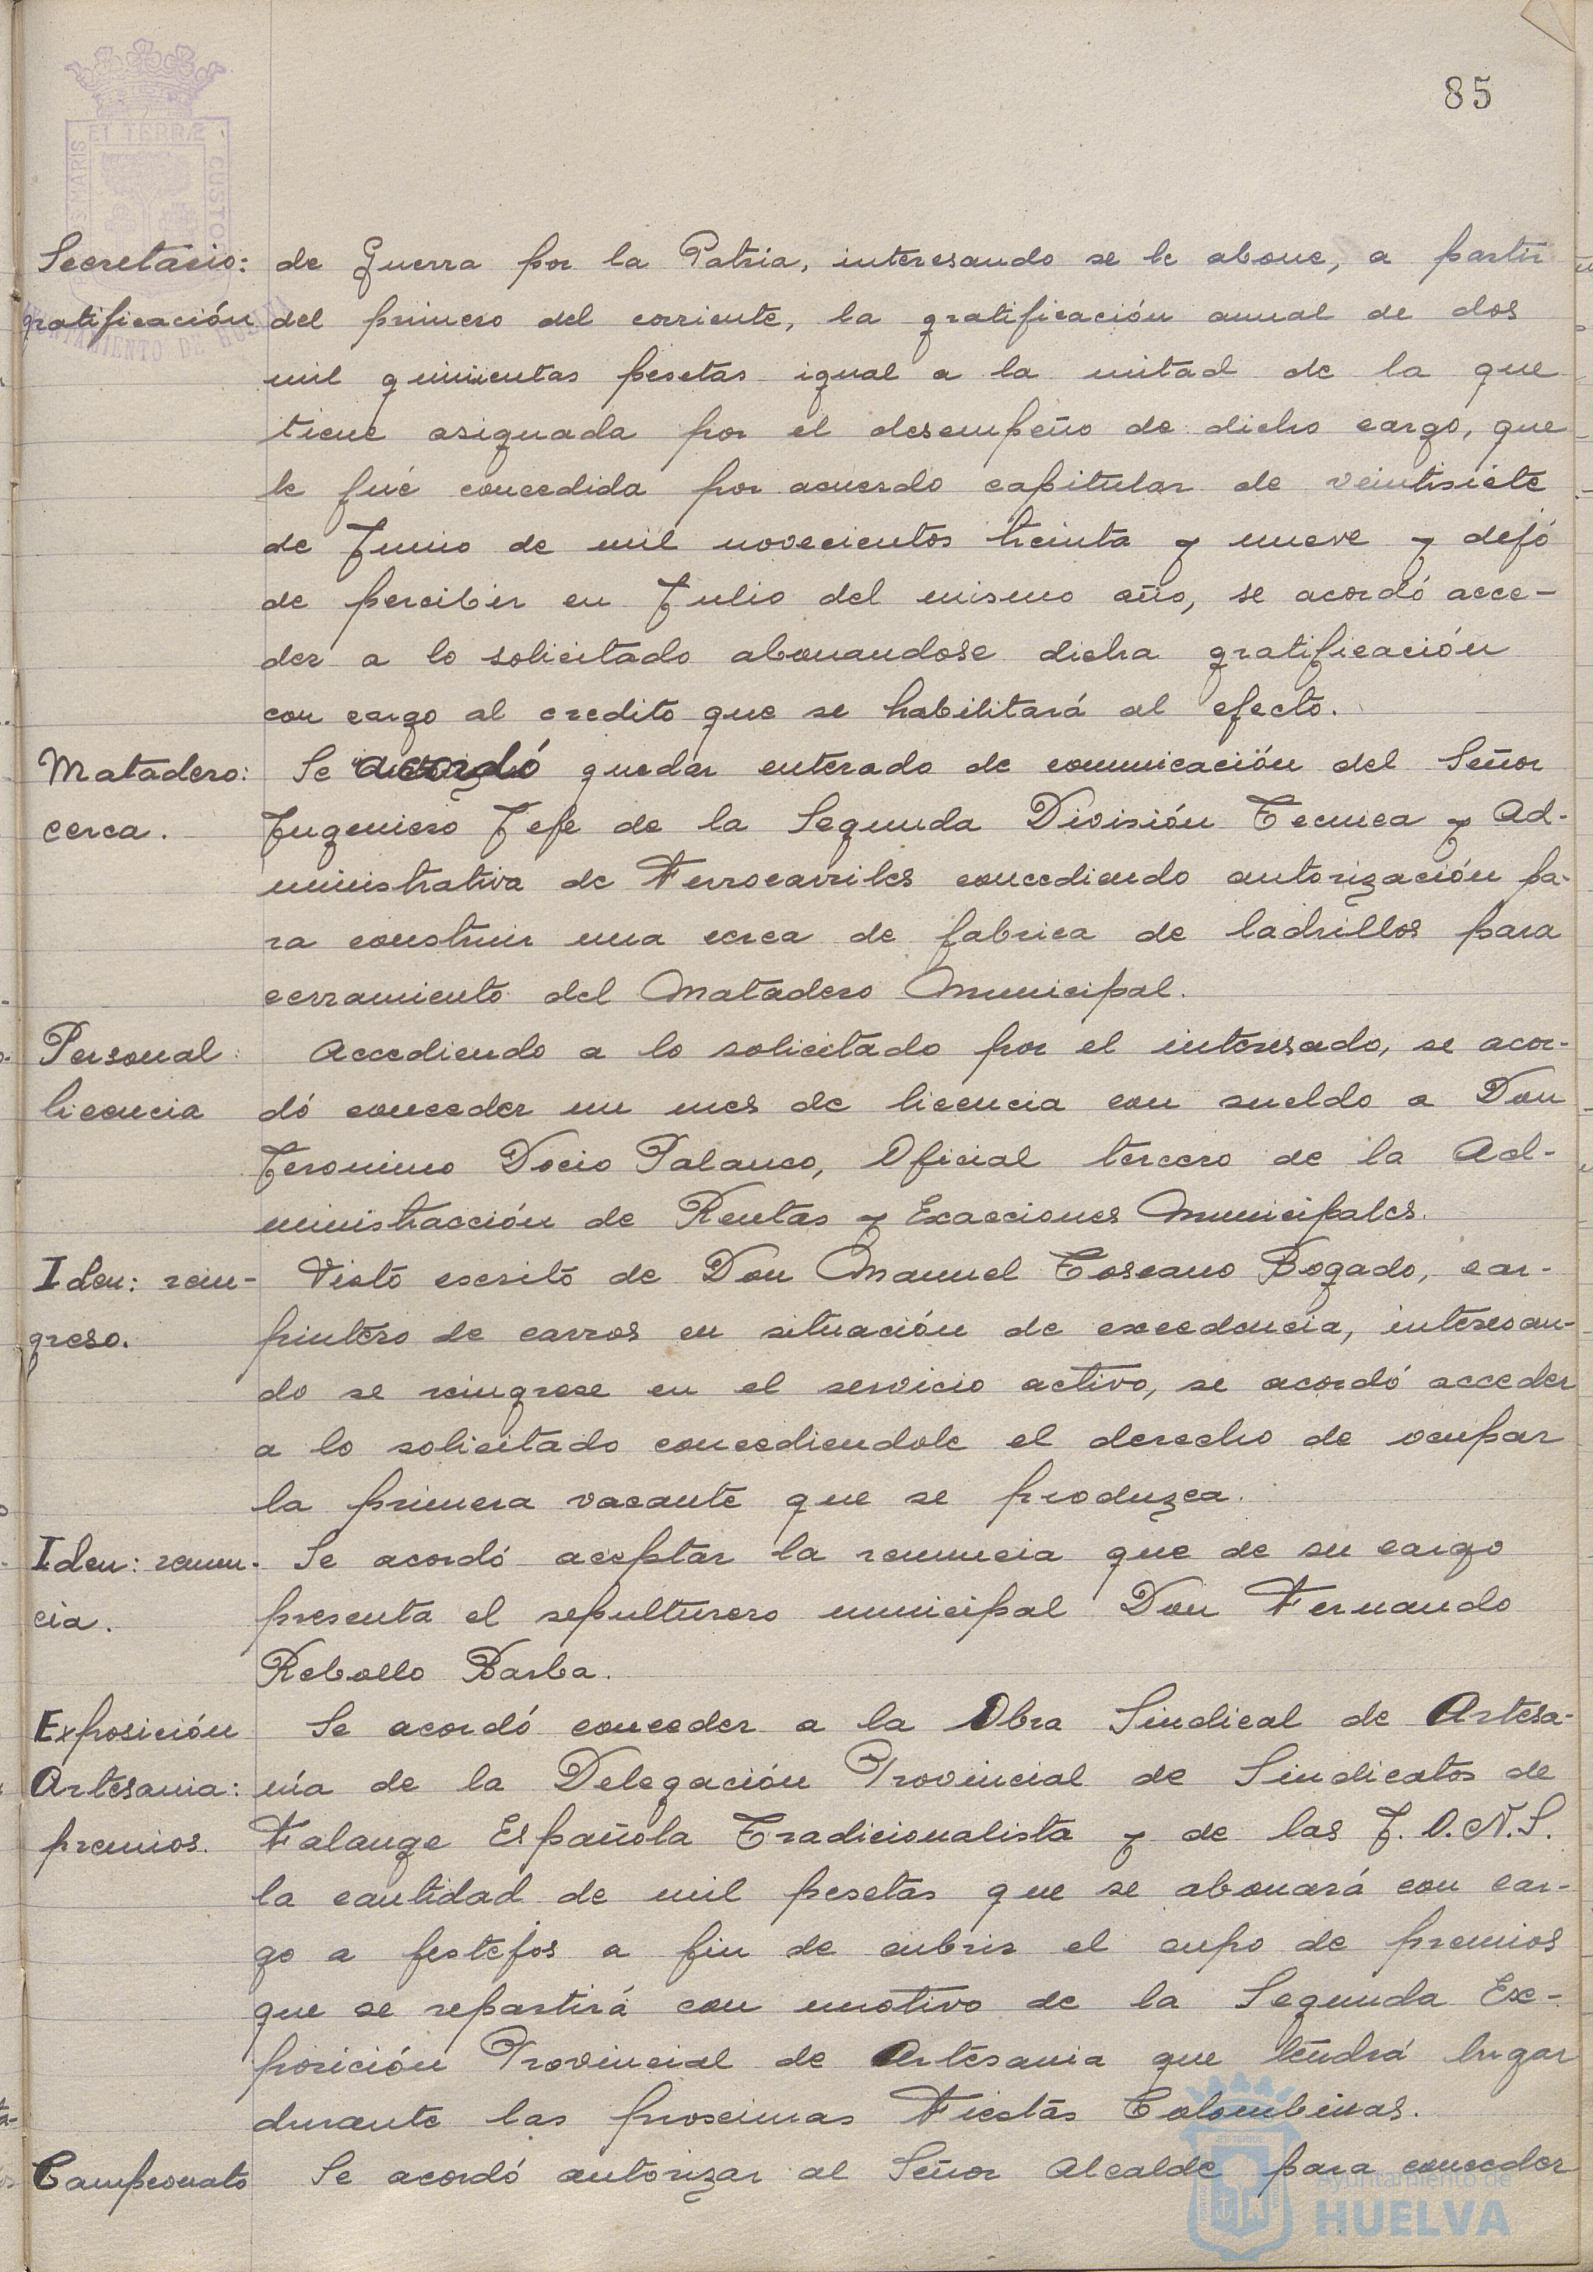 85
Secretario: de Guerra por la Patria, interesando se le abone, a partir
gratificación del primero del corriente, la gratificación anual de dos
mil quinientas pesetas igual a la mitad de la que
tiene asignada por el desempeño de dicho cargo, que
le fué concedida por acuerdo capitular de veintisiete
de Junio de mil novecientos treinta y nueve y dejó
de percibir en Julio del mismo año, se acordó acce-
der a lo solicitado abonandose dicha gratificación
con cargo al credito que se habilitará al efecto.
Matadero: Se acordó quedar enterado de comunicación del Señor
cerca. Ingeniero Jefe de la Segunda División Tecnica y Ad-
ministrativa de Ferrocarriles concediendo autorización pa-
ra construir una cerca de fabrica de ladrillos para
cerramiento del Matadero Municipal.
Personal: Accediendo a lo solicitado por el interesado, se acor-
licencia dó conceder un mes de licencia con sueldo a Don
Jeronimo Docio Palanco, Oficial tercero de la Ad-
ministracción de Rentas y Exacciones Municipales.
Iden: rein- Visto escrito de Don Manuel Toscano Bogado, car-
greso. pintero de carros en situación de excedencia, interesan-
do se reingrese en el servicio activo, se acordó acceder
a lo solicitado concediendole el derecho de ocupar
la primera vacante que se produzca.
Iden: renun- Se acordó aceptar la renuncia que de su cargo
cia. presenta el sepulturero municipal Don Fernando
Rebollo Barba.
Exposición Se acordó conceder a la Obra Sindical de Artesa-
Artesania: nía de la Delegación Provincial de Sindicatos de
premios. Falange Española Tradicionalista y de las J.O.N.S.
la cantidad de mil pesetas que se abonará con car-
go a festejos a fin de cubrir el cupo de premios
que se repartirá con motivo de la Segunda Ex-
posición Provincial de Artesania que tendrá lugar
durante las proximas Fiestas Colombinas.
Campeonato Se acordó autorizar al Señor Alcalde para conceder
Ayuntamiento de
HUELVA